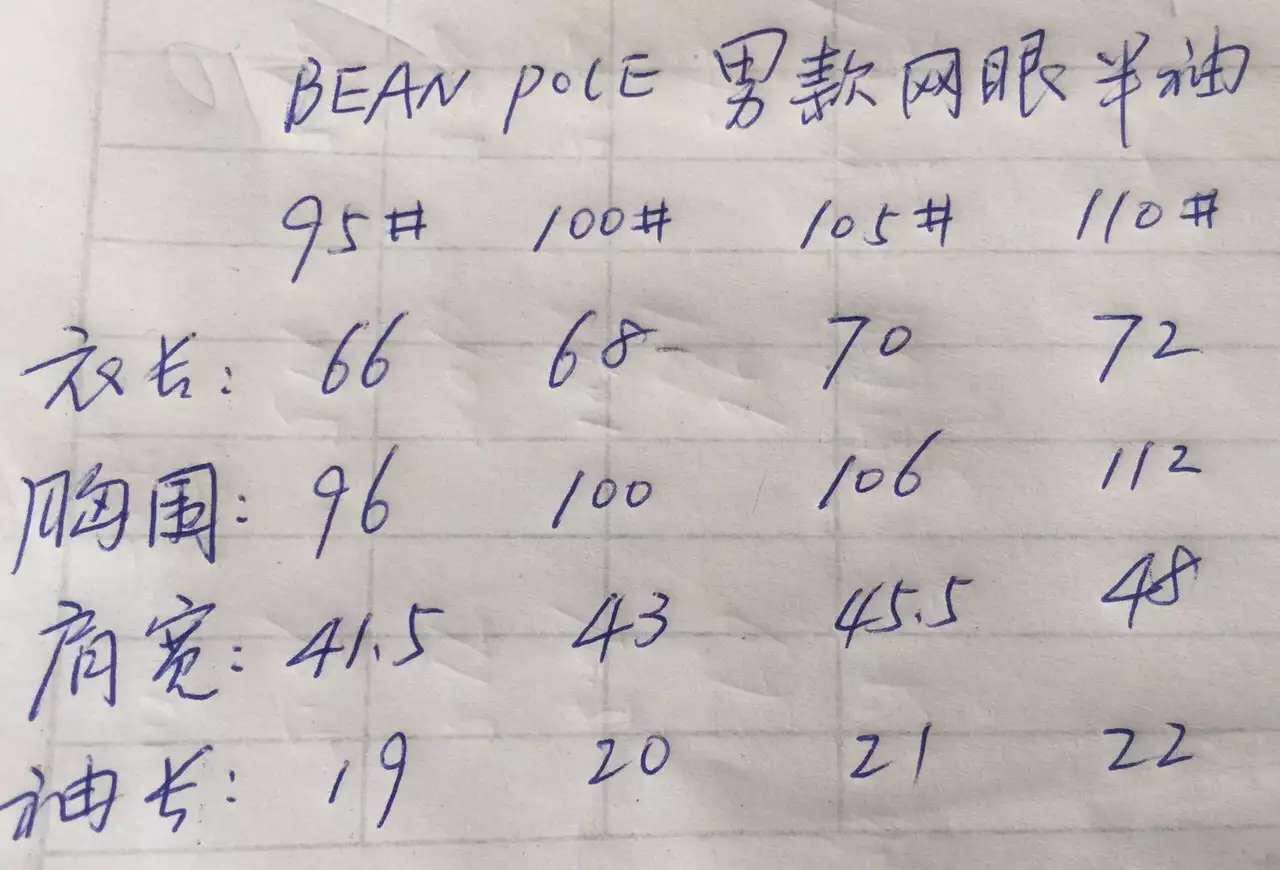 BEAN POLE 男款网眼半袖
95# 100# 105# 110#
衣长: 66 68 70 72
胸围: 96 100 106 112
肩宽: 41.5 43 45.5 48
袖长: 19 20 21 22